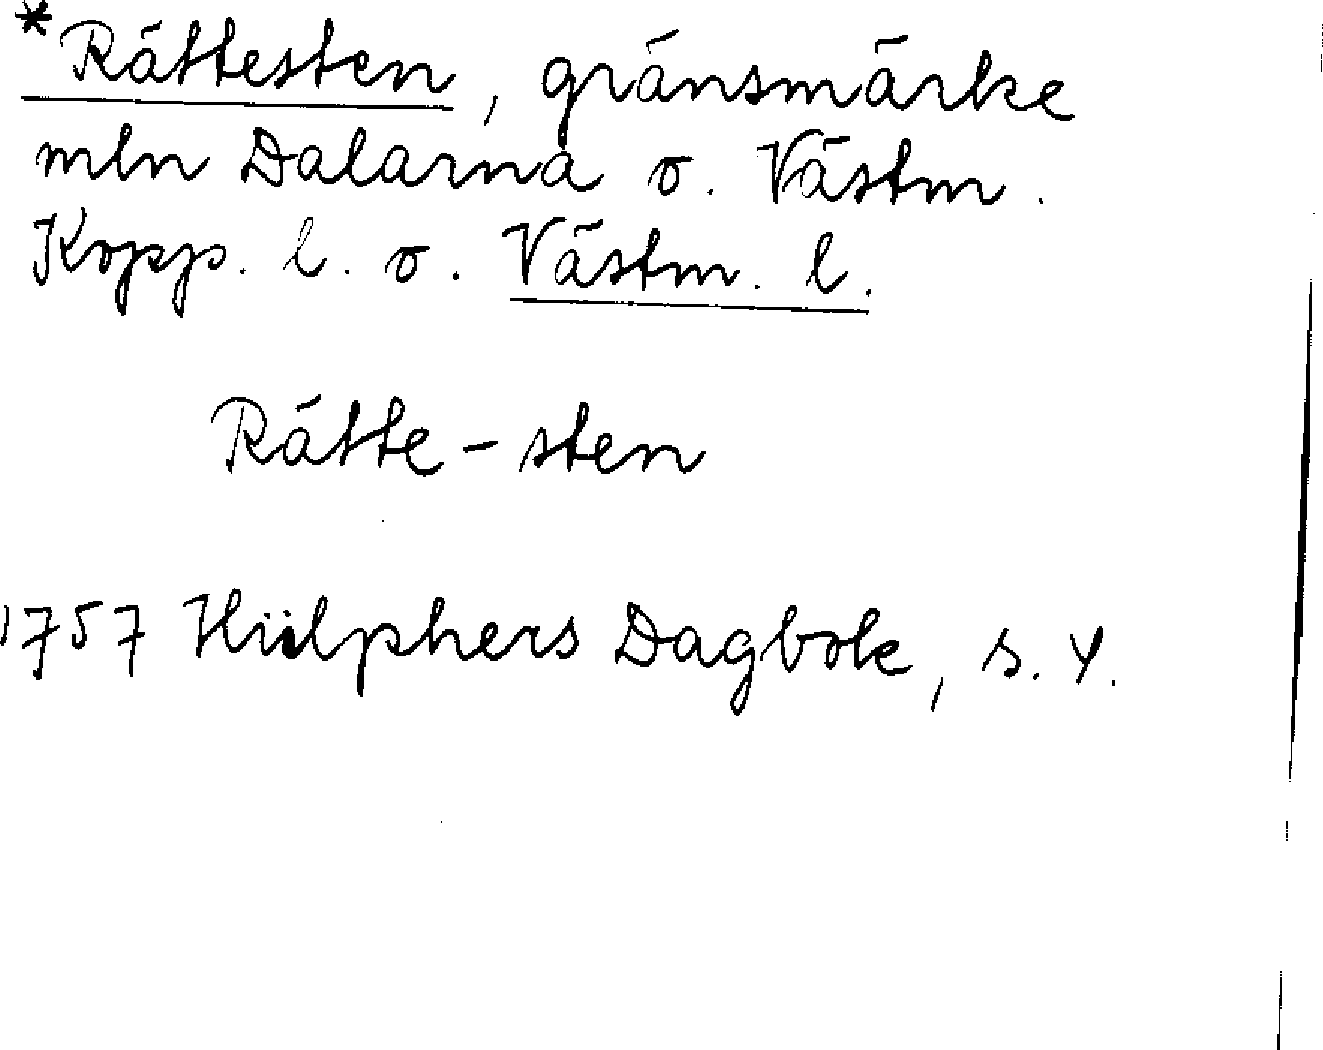 *Rättesten, gränsmärke
mln Dalarna o. Västm.
Kopp. l. o. Västm. l.
Rätte-sten
1757 Hülphers Dagbok, s. 4.